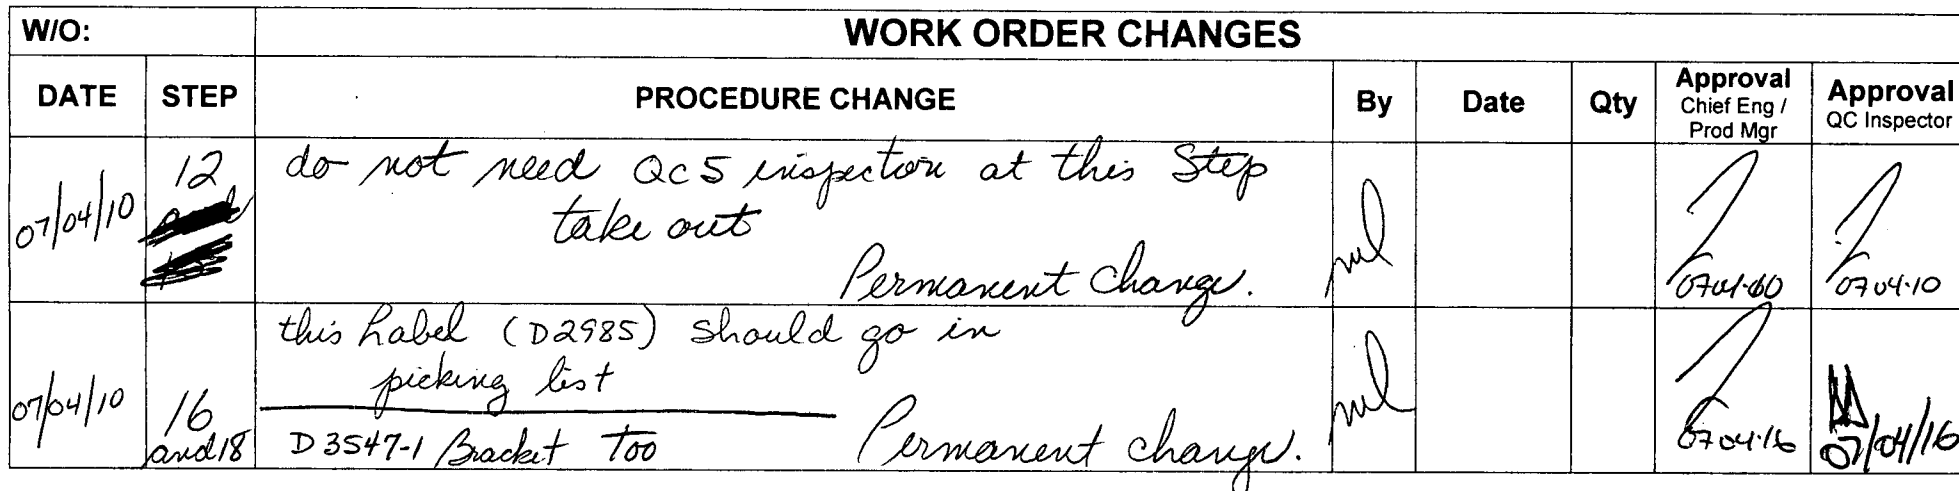 W/O: WORK ORDER CHANGES
DATE STEP PROCEDURE CHANGE By Date Qty Approval Chief Eng / Prod Mgr Approval QC Inspector
07/04/10 12 do not need QC5 inspection at this Step
take out
Permanent change. 07·04·10
this Label (D2985) should go in
picking list
07/04/10 16 and 18 D3547-1 Bracket Too Permanent change. 07·04·16 07/04/16